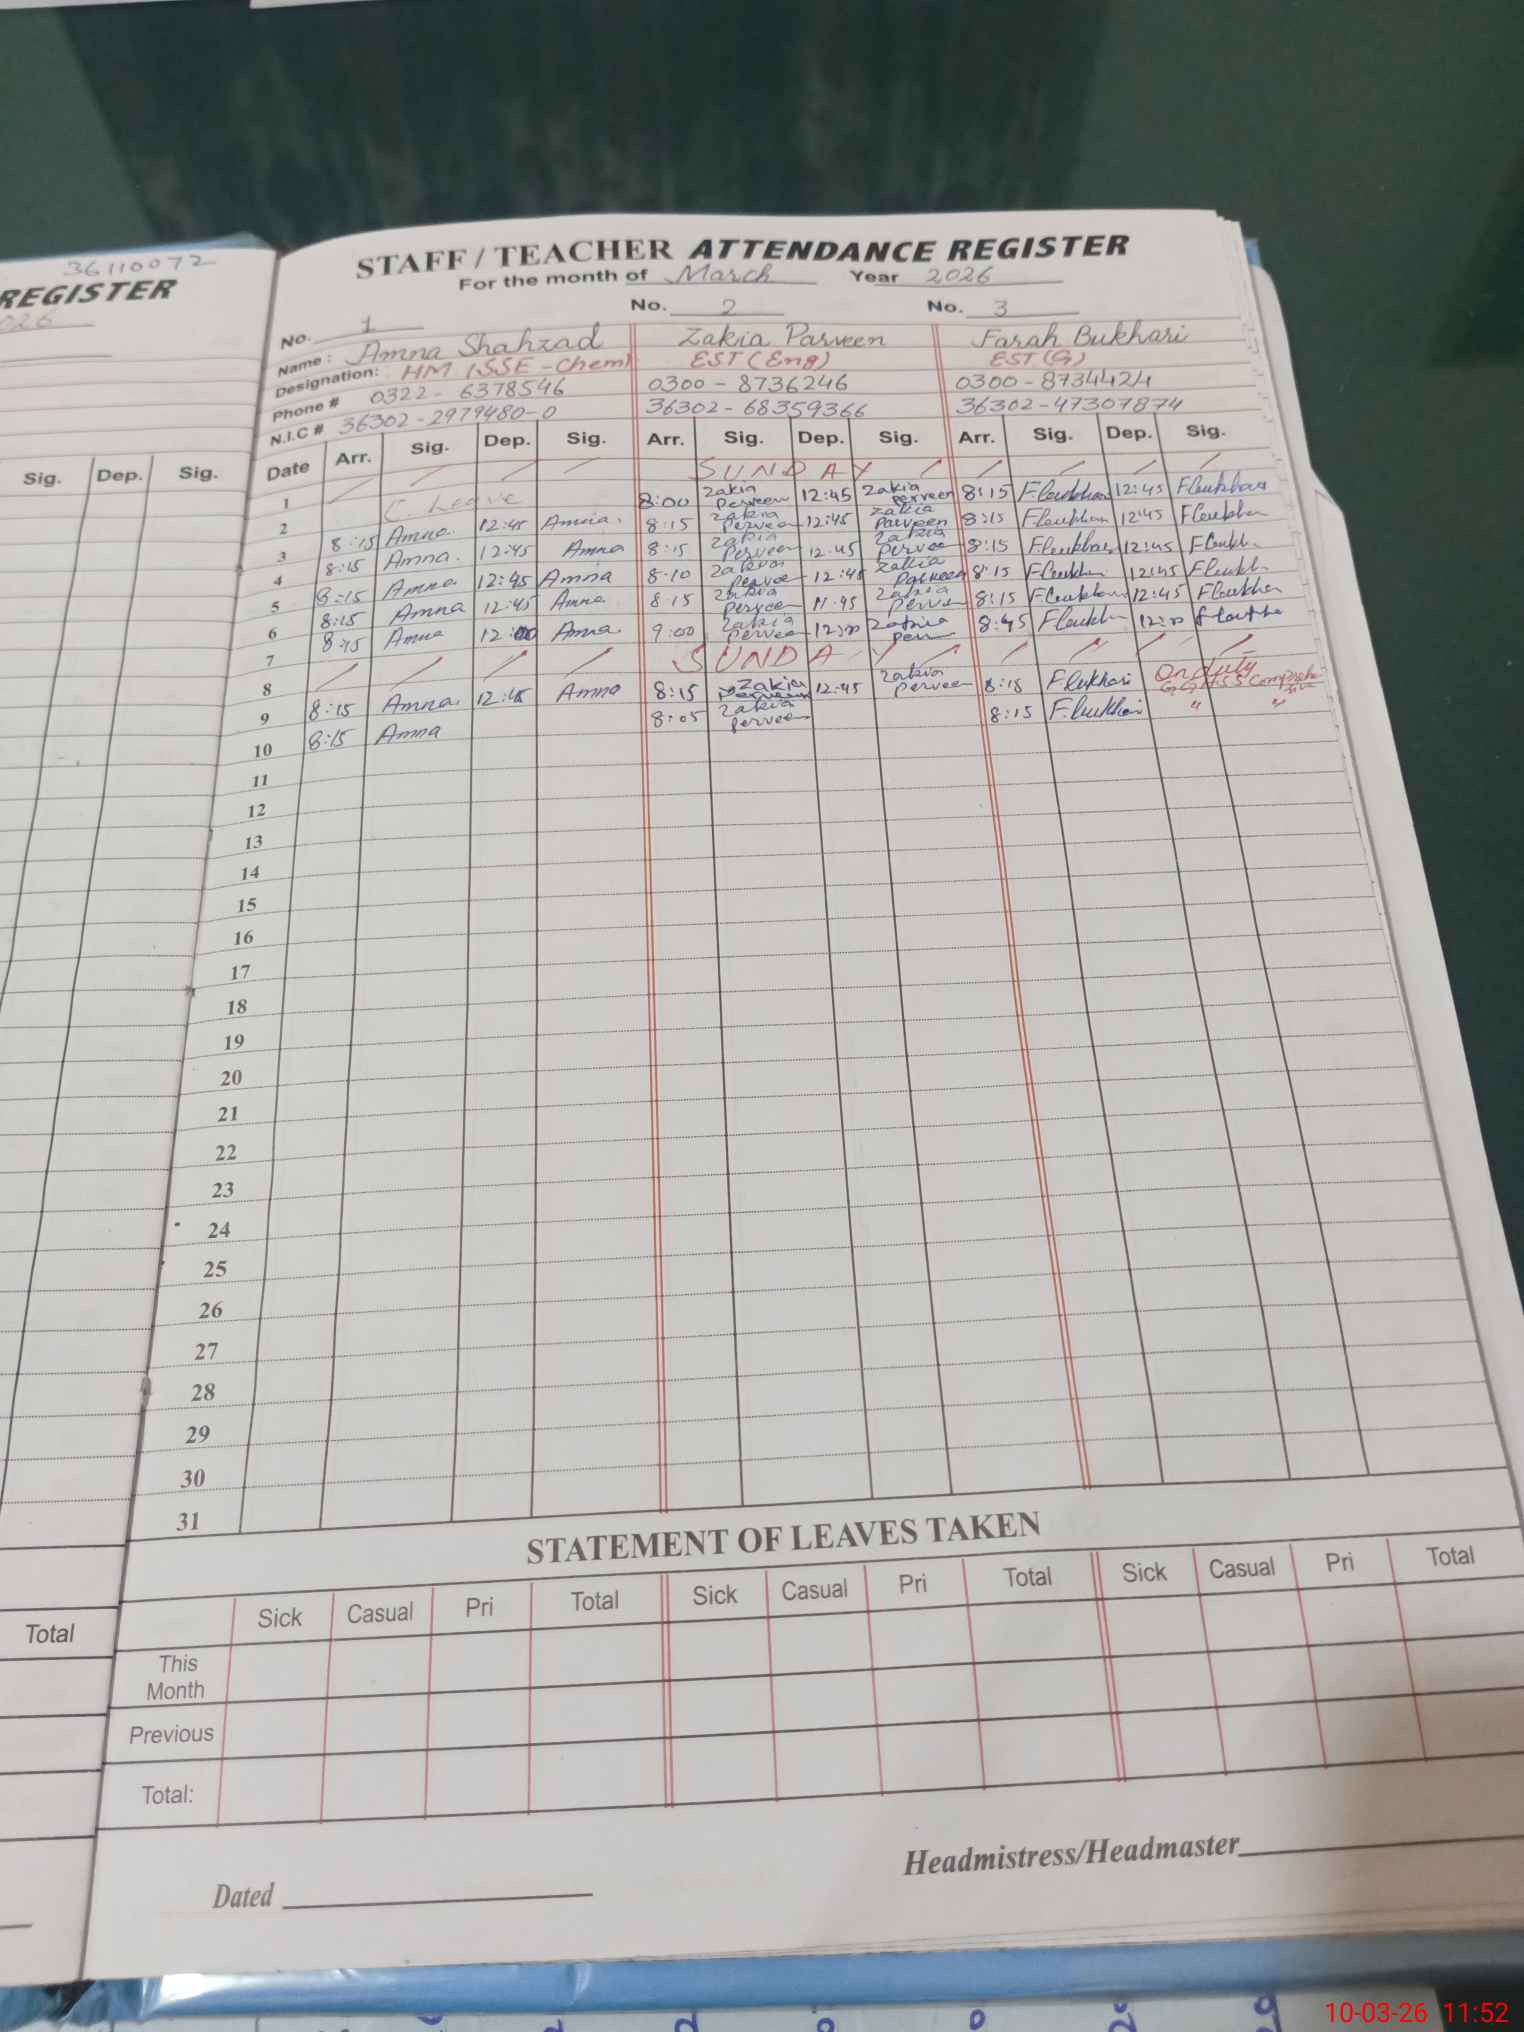 36110072
REGISTER
026
Sig. Dep. Sig.
Total
STAFF / TEACHER ATTENDANCE REGISTER
For the month of March Year 2026
No. 1 No. 2 No. 3
Name: Amna Shahzad Zakia Parveen Farah Bukhari
Designation: HM ISSE-Chem EST (Eng) EST (G)
Phone # 0322-6378546 0300-8736246 0300-8734424
N.I.C # 36302-2979480-0 36302-68359366 36302-47307874
Date Arr. Sig. Dep. Sig. Arr. Sig. Dep. Sig. Arr. Sig. Dep. Sig.
1 SUNDAY
2 C Leave 8:00 Zakia Perveen 12:45 Zakia Perveen 8:15 12:45
3 8:15 Amna. 12:45 Amna. 8:15 Zakia Perveen 12:45 Zakia Parveen 8:15 12:45
4 8:15 Amna. 12:45 Amna 8:15 Zakia Perveen 12:45 Zakia Perveen 8:15 12:45
5 8:15 Amna 12:45 Amna 8:10 Zakia Perveen 12:45 Zakia Parveen 8:15 12:45
6 8:15 Amna 12:45 Amna 8:15 Zakia Perveen 11:45 Zakia 8:15 12:45
7 8:45 Amna 12:00 Amna 9:00 Zakia Perveen 12:00 Zakia 8:45 12:00
8 SUNDAY
9 8:15 Amna. 12:45 Amna 8:15 Zakia Perveen 12:45 Zakia Perveen 8:15 F.Bukhari On duty
10 8:15 Amna 8:05 Zakia Perveen 8:15 F.Bukhari " "
11
12
13
14
15
16
17
18
19
20
21
22
23
24
25
26
27
28
29
30
31
STATEMENT OF LEAVES TAKEN
Sick Casual Pri Total Sick Casual Pri Total Sick Casual Pri Total
This Month
Previous
Total:
Headmistress/Headmaster
Dated
10-03-26 11:52